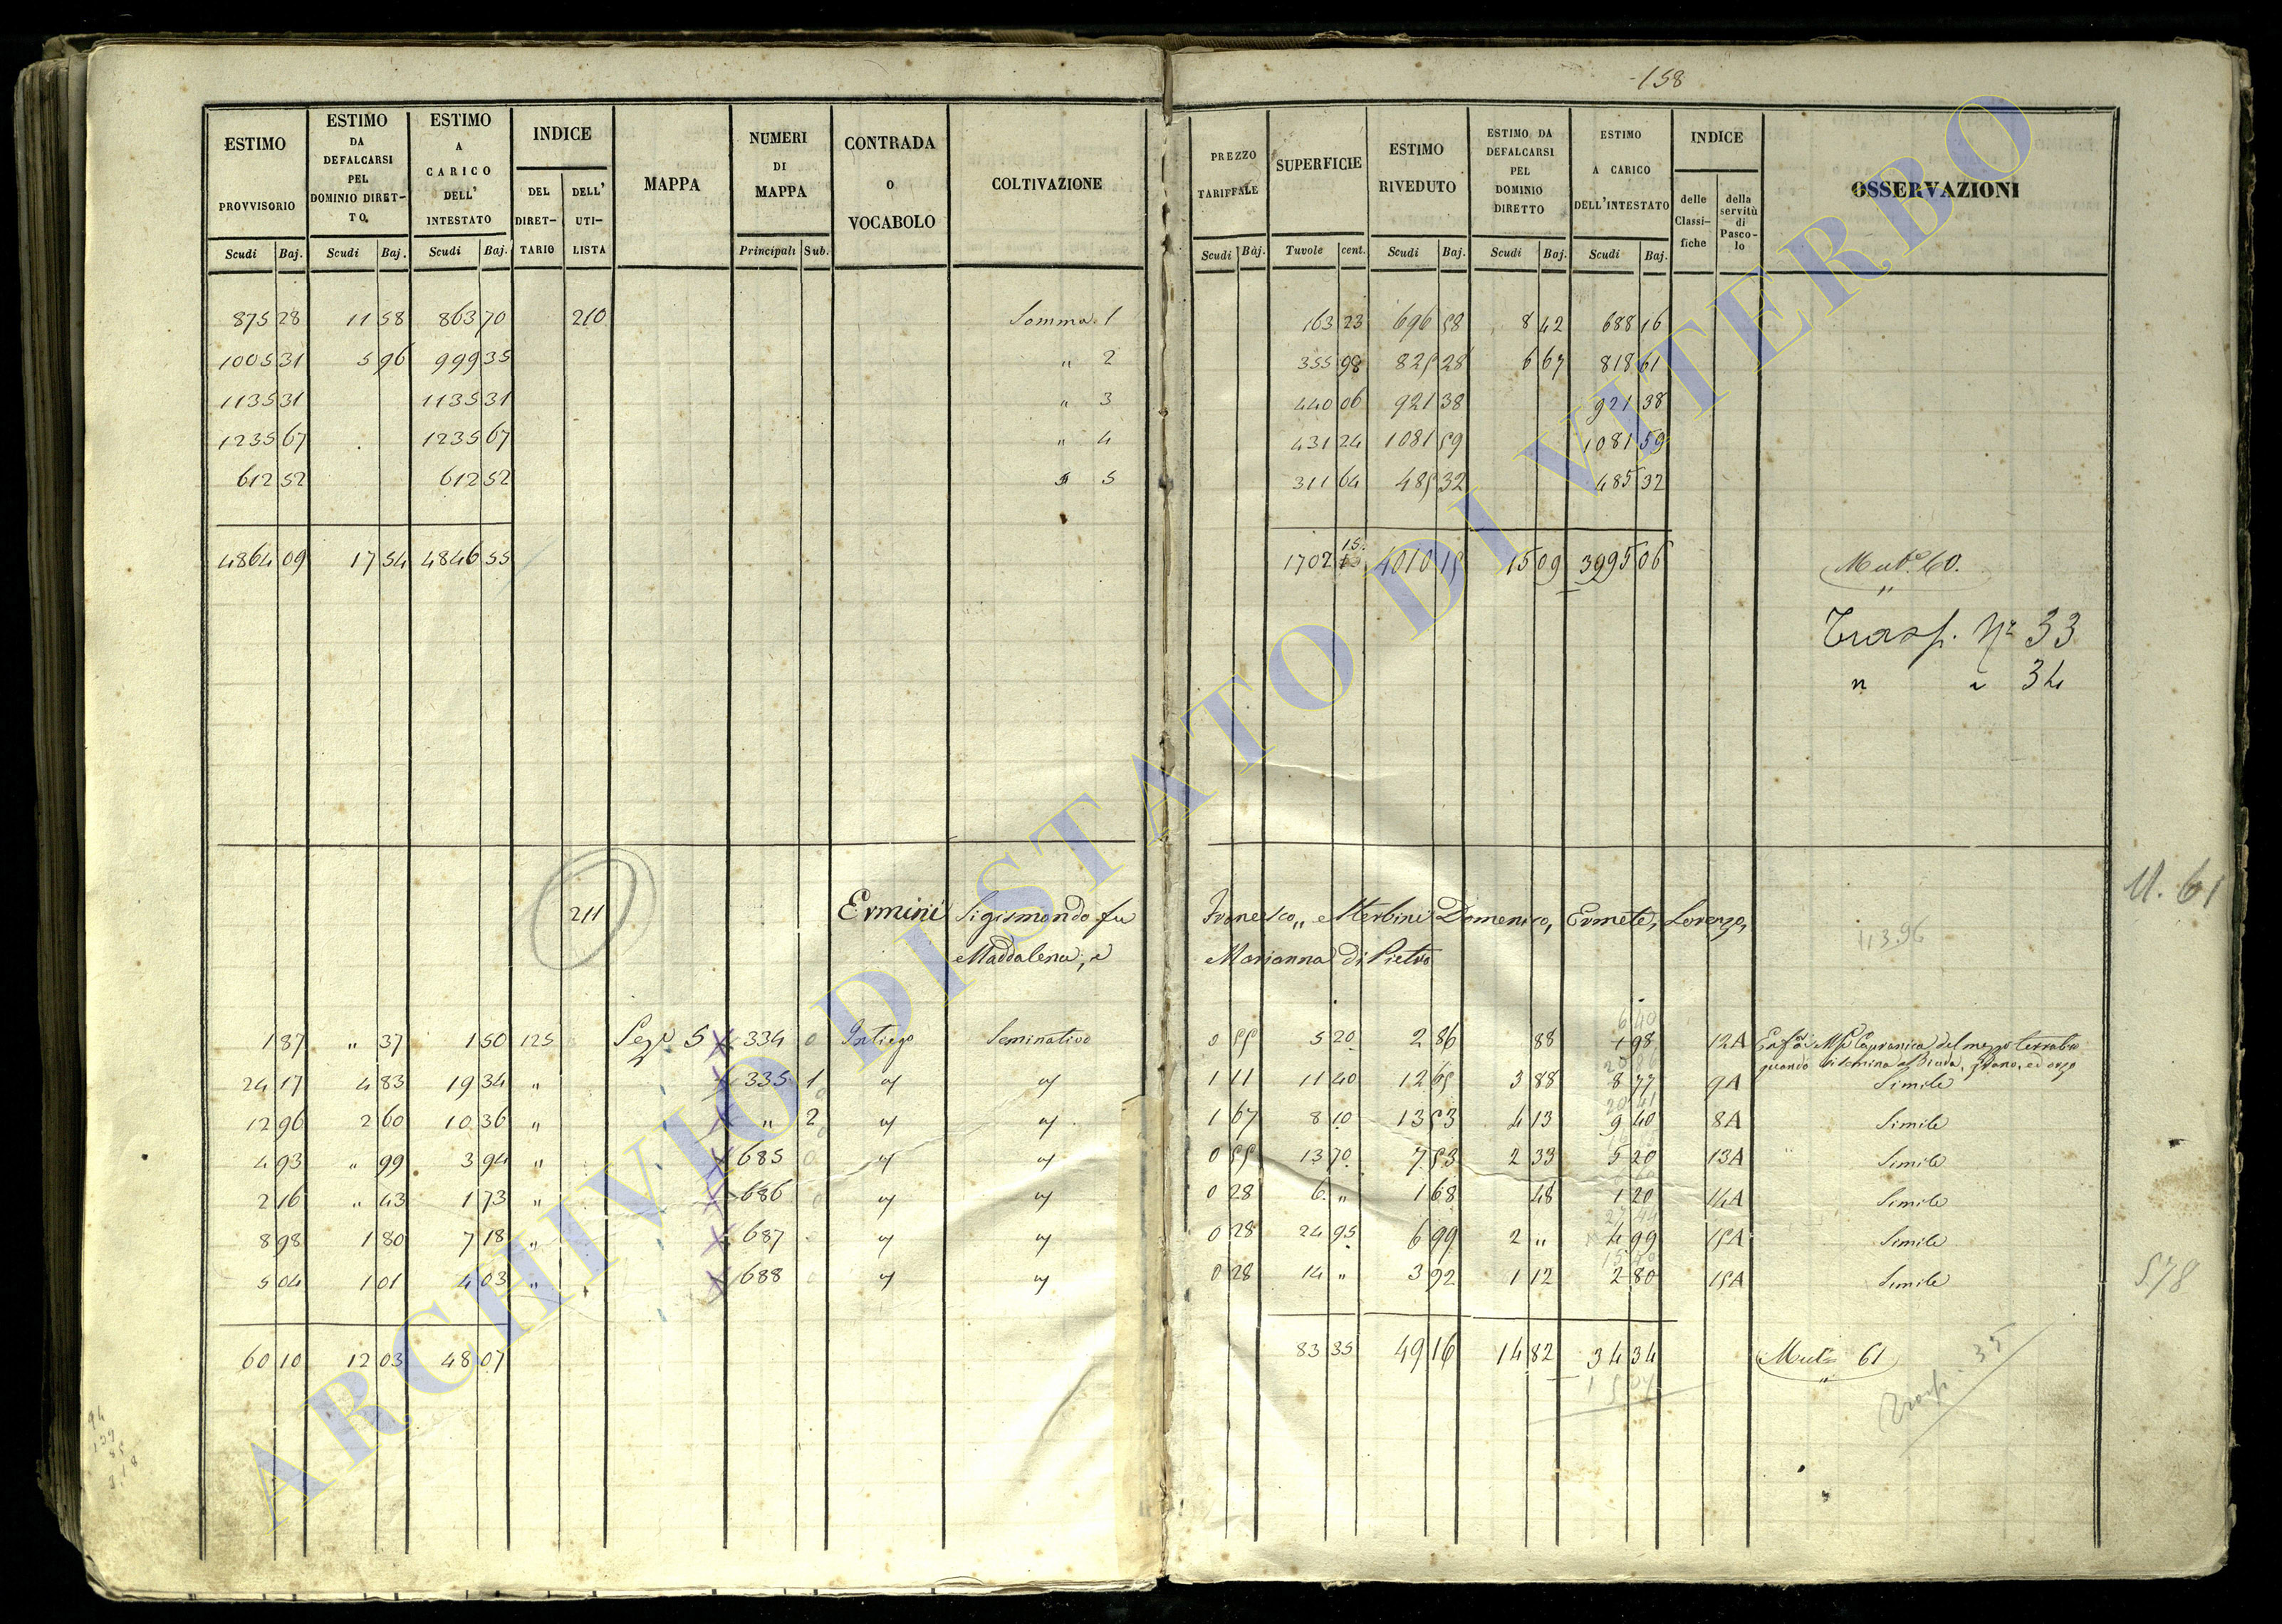 158
ESTIMO PROVVISORIO | ESTIMO DA DEFALCARSI PEL DOMINIO DIRETTO. | ESTIMO A CARICO DELL' INTESTATO | INDICE | MAPPA | NUMERI DI MAPPA | CONTRADA O VOCABOLO | COLTIVAZIONE | PREZZO TARIFFALE | SUPERFICIE | ESTIMO RIVEDUTO | ESTIMO DA DEFALCARSI PEL DOMINIO DIRETTO | ESTIMO A CARICO DELL'INTESTATO | INDICE | OSSERVAZIONI
DEL DIRETTARIO | DELL' UTILISTA | delle Classifiche | della servitù di Pascolo
Scudi | Baj. | Scudi | Baj. | Scudi | Baj. | Principali | Sub. | Scudi | Baj. | Tavole | cent. | Scudi | Baj. | Scudi | Baj. | Scudi | Baj.
875 28 | 11 58 | 863 70 | 210 | Somma 1 | 163 23 | 696 58 | 8 42 | 688 16
1005 31 | 5 96 | 999 35 | " 2 | 355 98 | 825 28 | 6 67 | 818 61
1135 31 | 1135 31 | " 3 | 440 06 | 921 38 | 921 38
1235 67 | 1235 67 | " 4 | 431 24 | 1081 59 | 1081 59
612 52 | 612 52 | 5 | 311 64 | 485 32 | 485 32
4864 09 | 17 54 | 4846 55 | 1702 15 | 4010 15 | 15 09 | 3995 06 | Mut.e 60.
Trasp. Nr 33
" " 34
M. 61
211 | Ermini Sigismondo fu Francesco,, e Sterbini Domenico, Ermete, Lorenzo,
Maddalena, e Marianna di Pietro
113.96
1 87 | " 37 | 1 50 | 125 | Sez. 5 | 334 | 0 | Intiego | Seminativo | 0 55 | 5 20 | 2 86 | 88 | 1 98 | 12A | del mezzo terratico
quando si semina a Biada, grano, ed orzo
24 17 | 4 83 | 19 34 | " | 335 | 1 | 1 11 | 11 40 | 12 65 | 3 88 | 8 77 | 9A | Simile
12 96 | 2 60 | 10 36 | " | " | 2 | 1 67 | 8 10 | 13 53 | 4 13 | 9 40 | 8A | Simile
4 93 | " 99 | 3 94 | " | 685 | 0 | 0 55 | 13 70 | 7 53 | 2 33 | 5 20 | 13A | Simile
2 16 | " 43 | 1 73 | " | 686 | 0 | 0 28 | 6 " | 1 68 | 48 | 1 20 | 14A | Simile
8 98 | 1 80 | 7 18 | " | 687 | 0 28 | 24 95 | 6 99 | 2 " | 4 99 | 15A | Simile
5 04 | 1 01 | 4 03 | " | 688 | 0 | 0 28 | 14 " | 3 92 | 1 12 | 2 80 | 15A | Simile
578
60 10 | 12 03 | 48 07 | 83 35 | 49 16 | 14 82 | 34 34 | Mut.e 61
Trasp. 35
ARCHIVIO DI STATO DI VITERBO